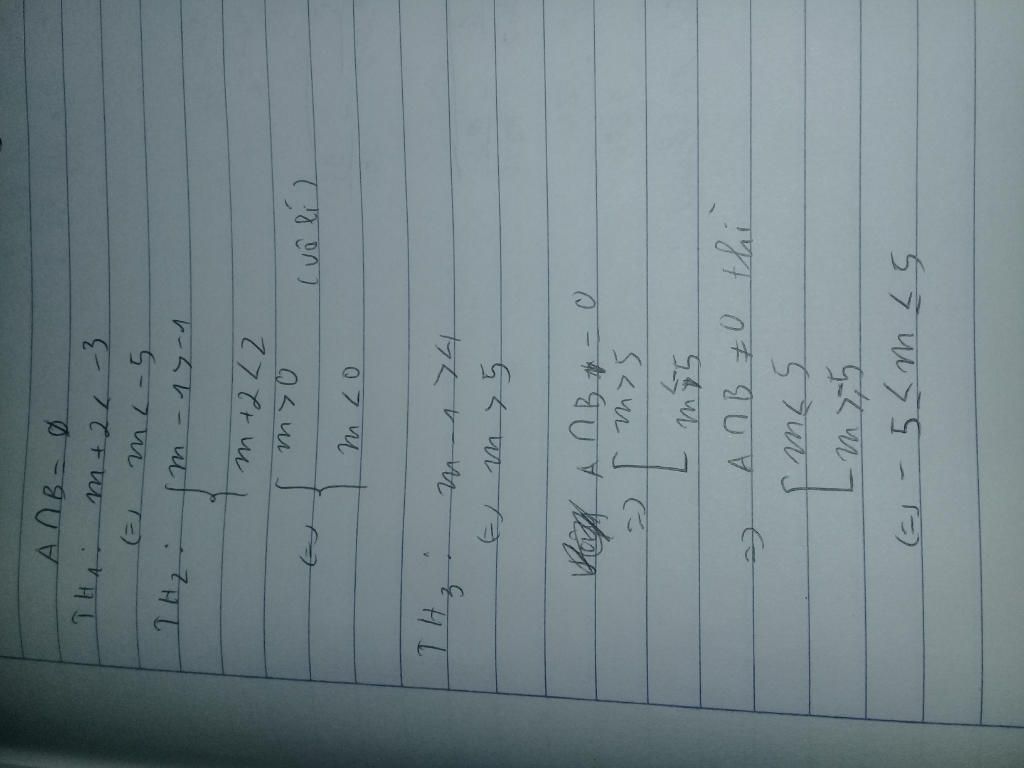 A ∩ B = ∅
TH1. m + 2 < -3
(=) m < -5
TH2. { m - 1 > -1
m + 2 < 2
(=) { m > 0 (vô lí)
m < 0
TH3. m - 1 > 4
(=) m > 5
A ∩ B = 0
=) [ m > 5
m < -5
=) A ∩ B ≠ 0 thì
[ m ≤ 5
m ≥ -5
(=) - 5 ≤ m ≤ 5